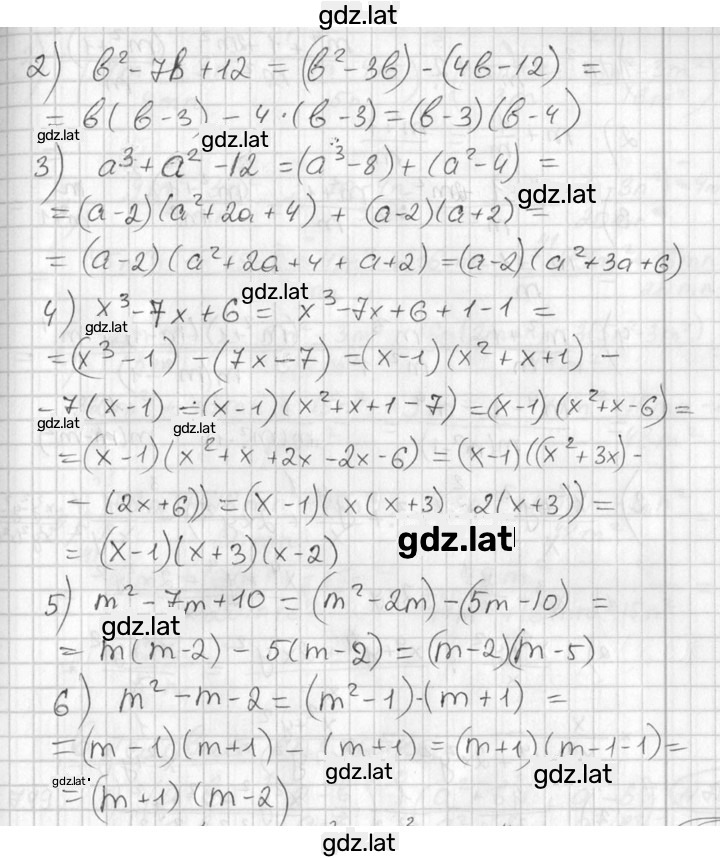 gdz.lat
2) b² - 7b + 12 = (b² - 3b) - (4b - 12) =
= b(b - 3) - 4·(b - 3) = (b - 3)(b - 4)
gdz.lat
gdz.lat
3) a³ + a² - 12 = (a³ - 8) + (a² - 4) =
gdz.lat
= (a - 2)(a² + 2a + 4) + (a - 2)(a + 2) =
= (a - 2)(a² + 2a + 4 + a + 2) = (a - 2)(a² + 3a + 6)
gdz.lat
4) x³ - 7x + 6 = x³ - 7x + 6 + 1 - 1 =
gdz.lat
= (x³ - 1) - (7x - 7) = (x - 1)(x² + x + 1) -
- 7(x - 1) = (x - 1)(x² + x + 1 - 7) = (x - 1)(x² + x - 6) =
gdz.lat
gdz.lat
= (x - 1)(x² + x + 2x - 2x - 6) = (x - 1)((x² + 3x) -
- (2x + 6)) = (x - 1)(x(x + 3) 2(x + 3)) =
gdz.lat
= (x - 1)(x + 3)(x - 2)
5) m² - 7m + 10 = (m² - 2m) - (5m - 10) =
gdz.lat
= m(m - 2) - 5(m - 2) = (m - 2)(m - 5)
6) m² - m - 2 = (m² - 1) - (m + 1) =
= (m - 1)(m + 1) - (m + 1) = (m + 1)(m - 1 - 1) =
gdz.lat
gdz.lat
gdz.lat
= (m + 1)(m - 2)
gdz.lat